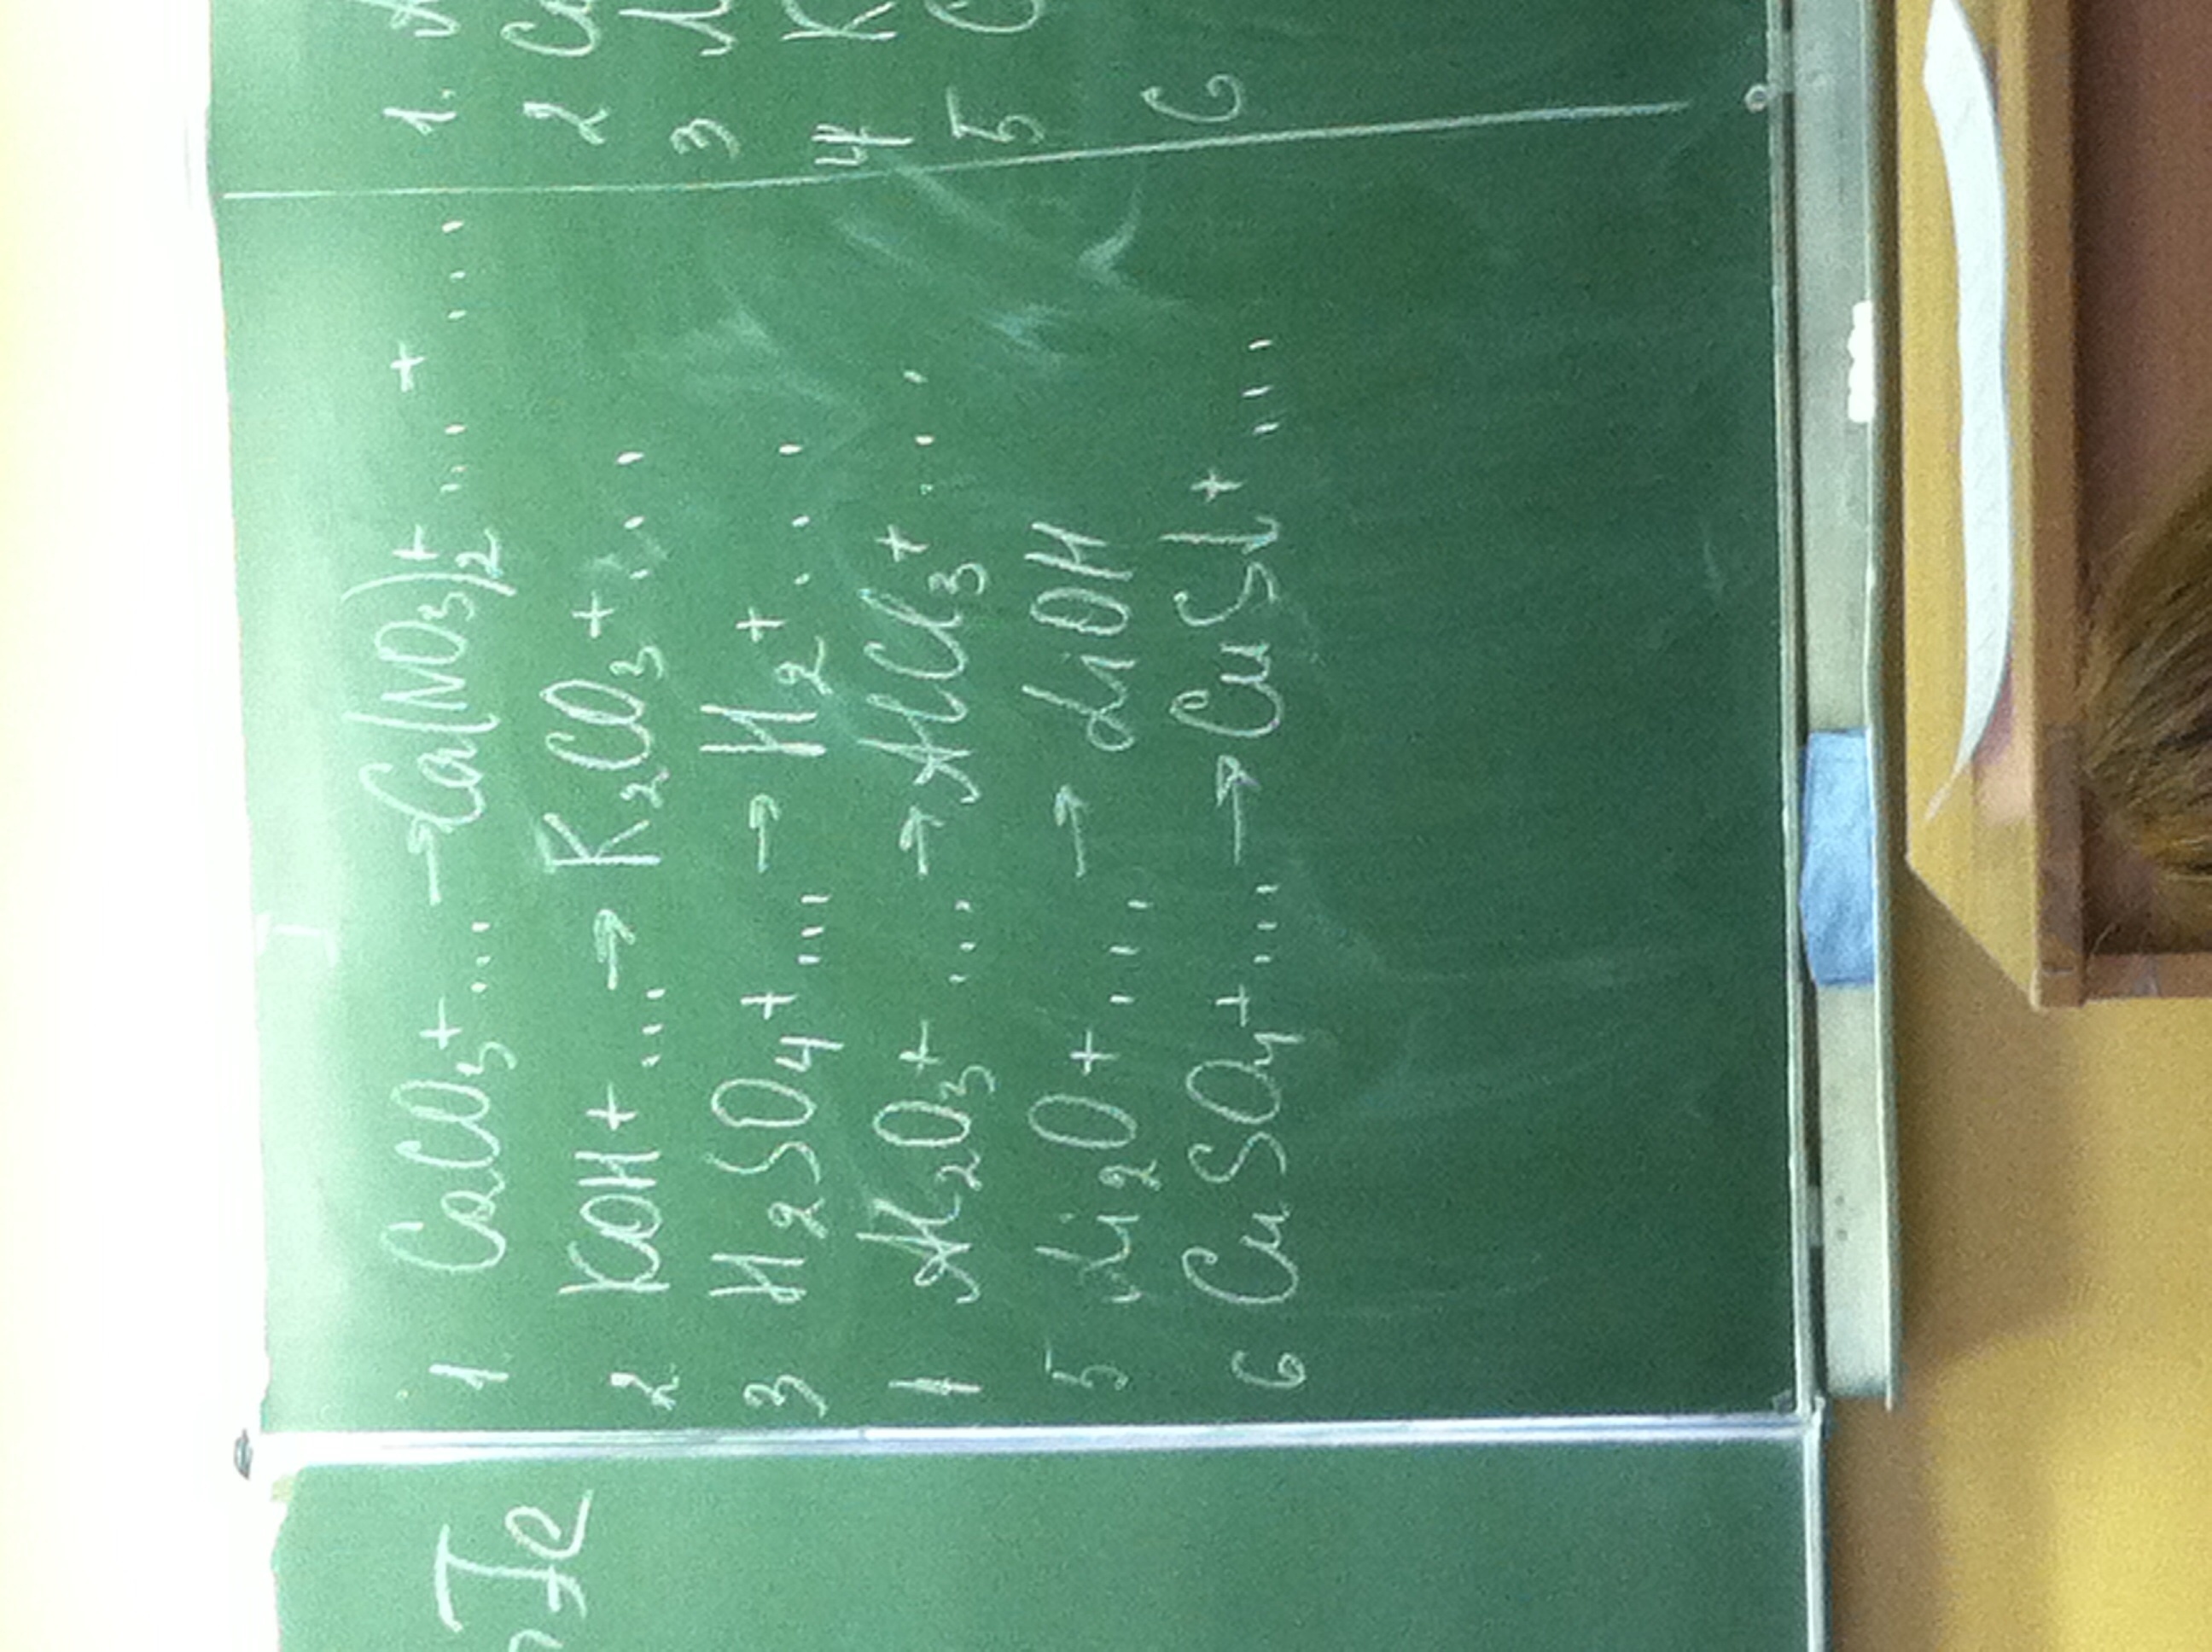 I
1 CaCO₃ + .... → Ca(NO₃)₂ + .... + ....
2 KOH + .... → K₂CO₃ + ....
3 H₂SO₄ + .... → H₂ + ....
4 Al₂O₃ + .... → AlCl₃ + ....
5 Li₂O + .... → LiOH
6 CuSO₄ + .... → CuS↓ + ....
1.
2 Cu
3
4 K
5 C
6
Fe